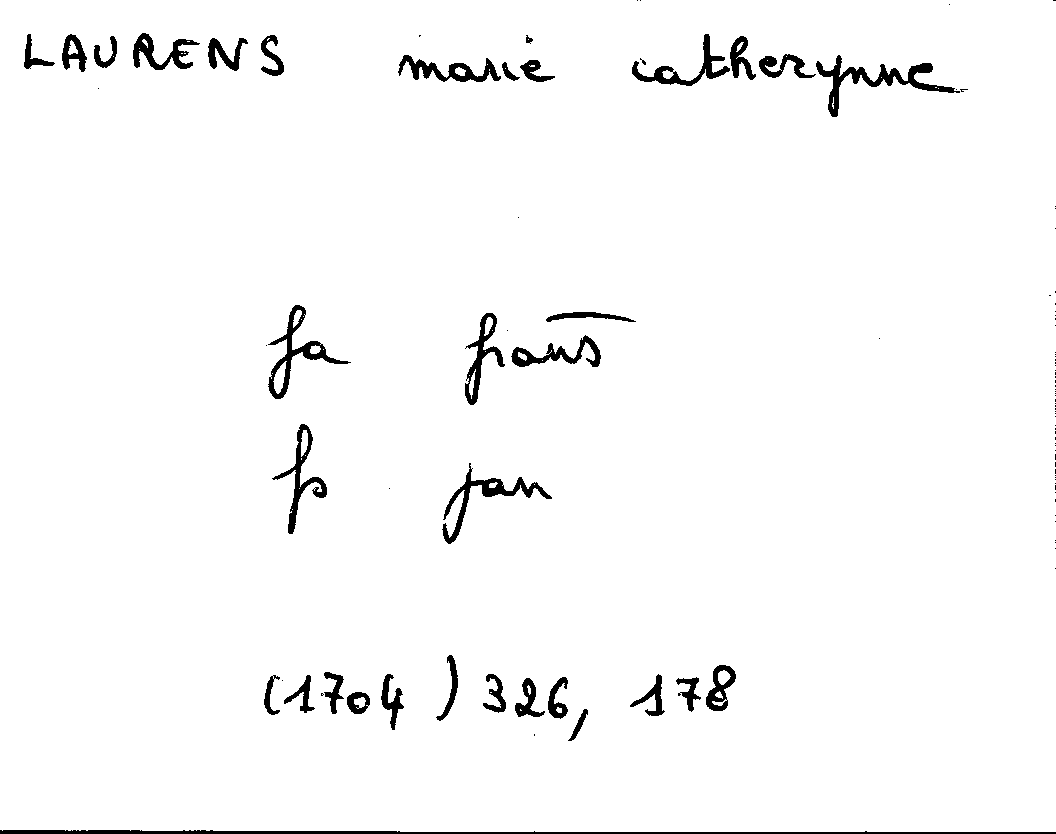 LAURENS marie catherynne
fa frans
fs jan
(1704) 326, 178